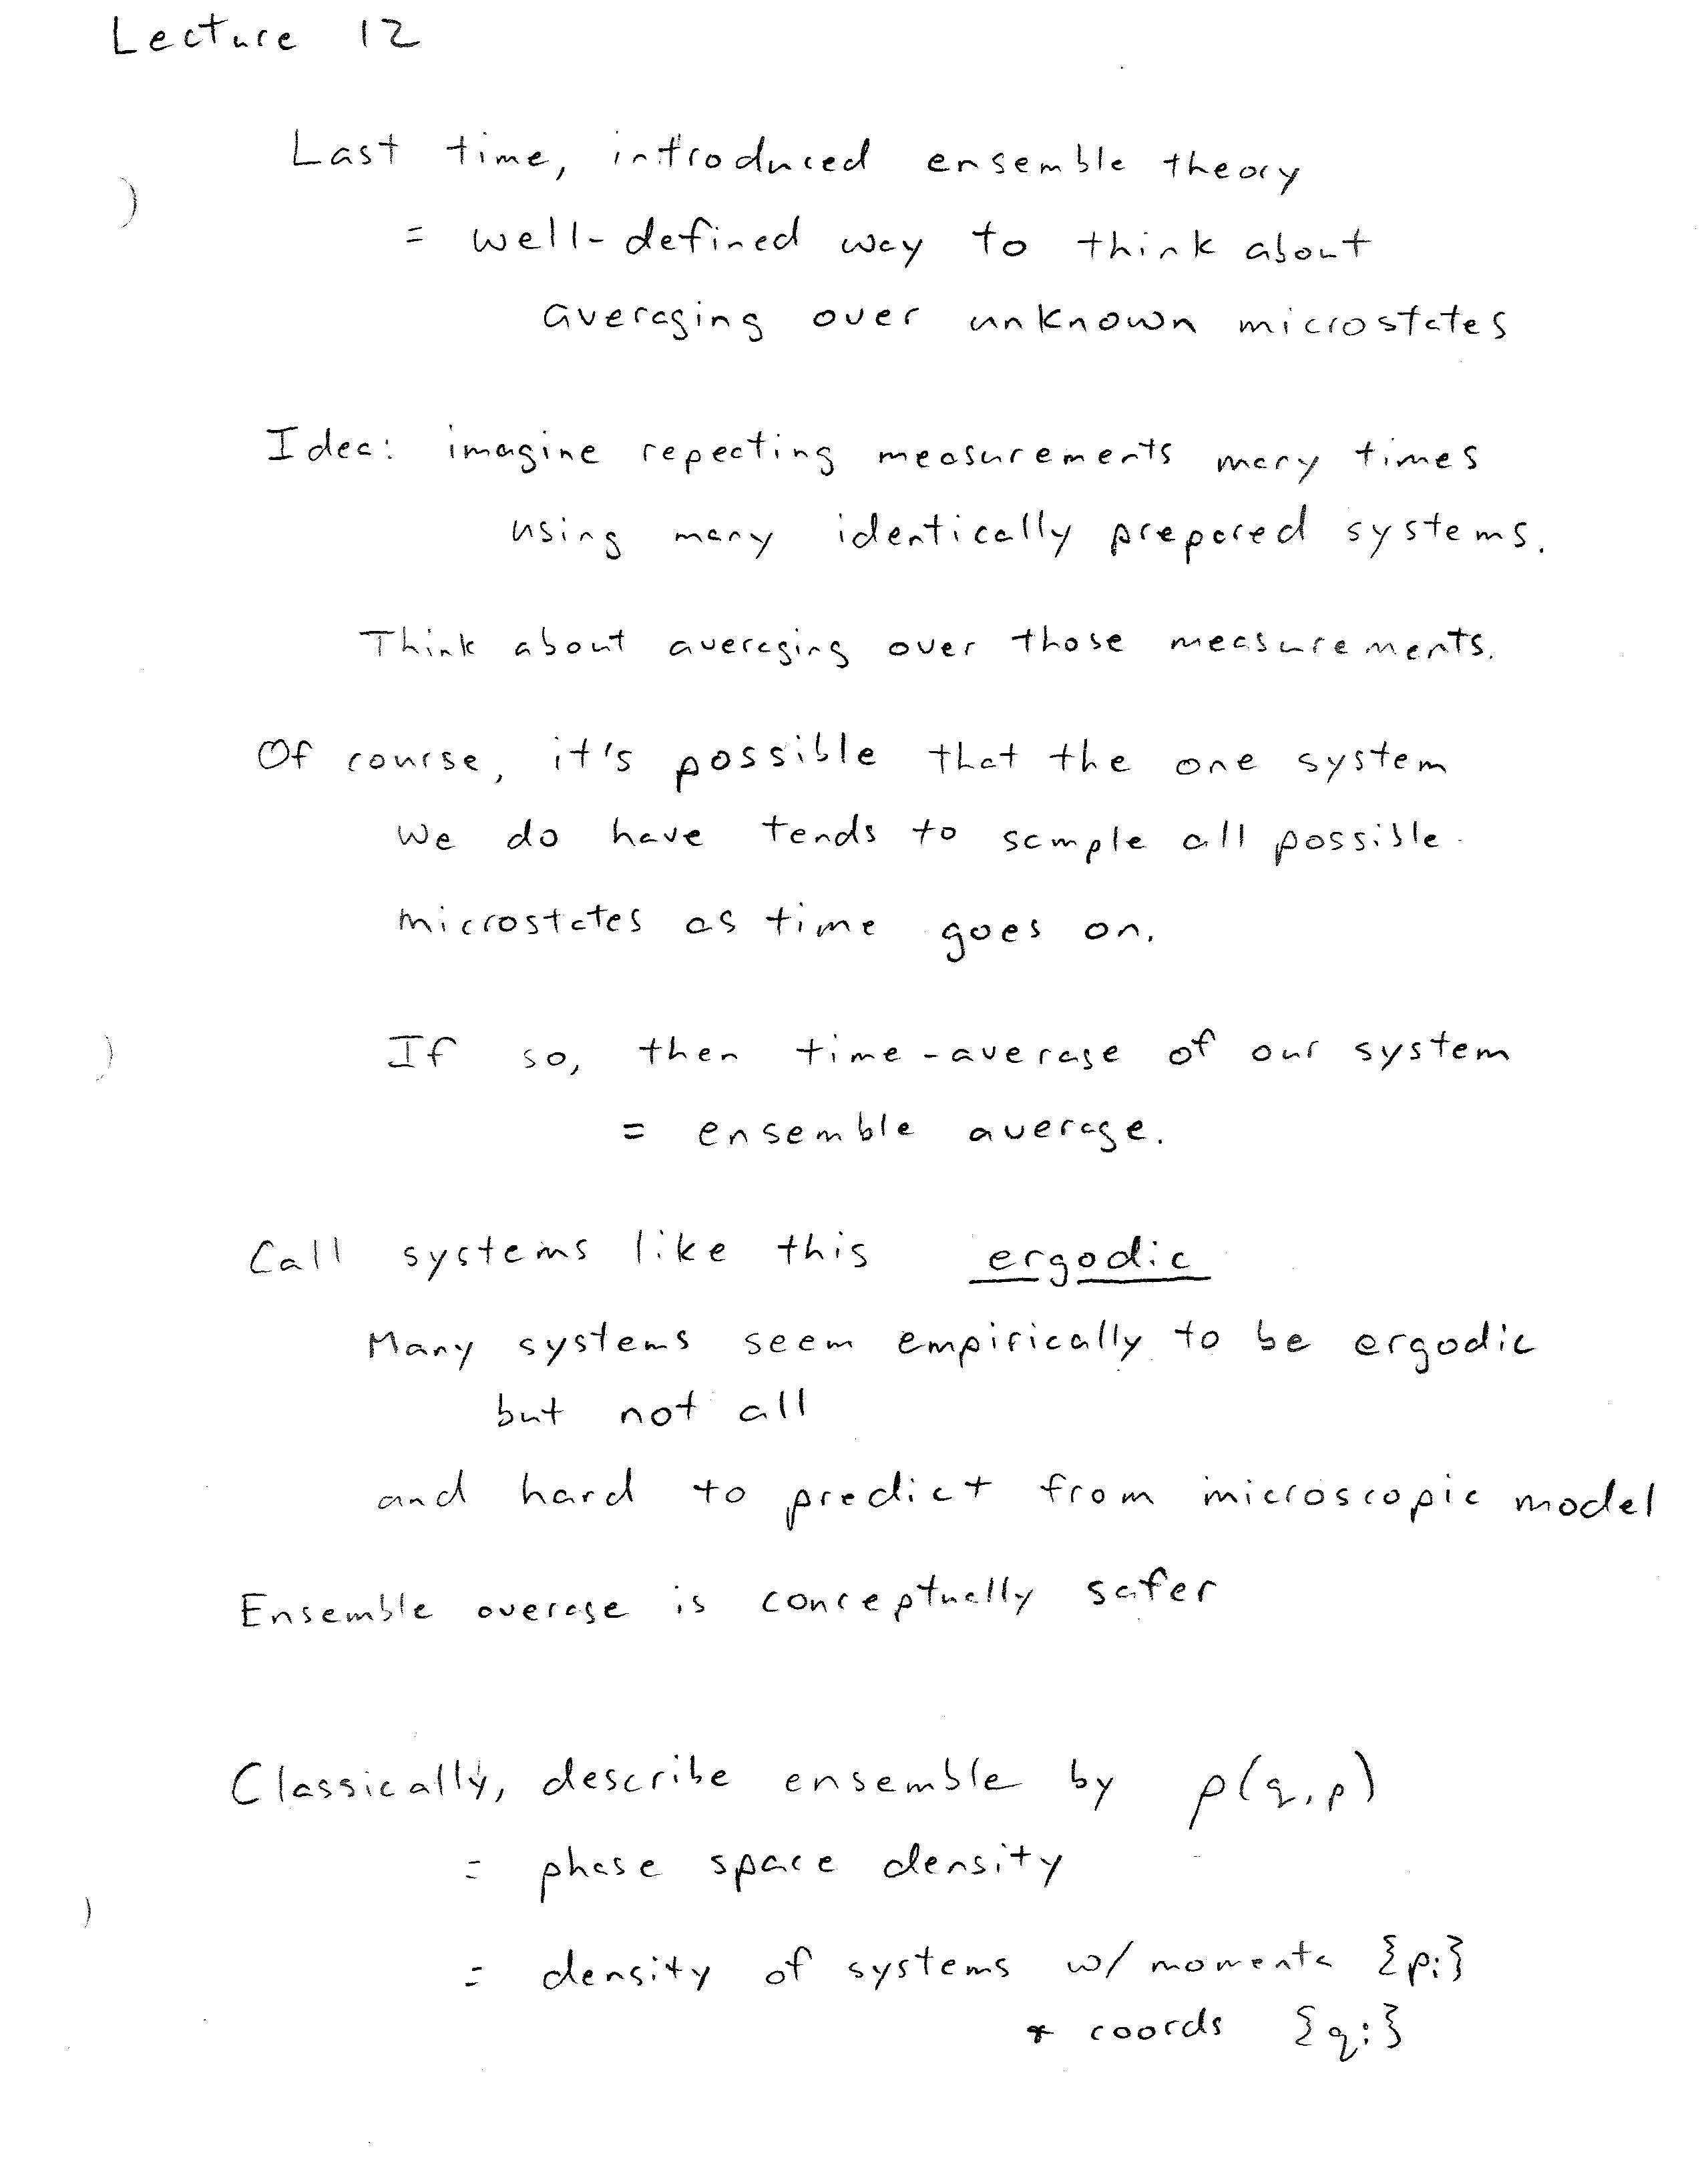 Lecture 12
Last time, introduced ensemble theory
= well-defined way to think about
averaging over unknown microstates
Idea: imagine repeating measurements many times
using many identically prepared systems.
Think about averaging over those measurements.
Of course, it's possible that the one system
we do have tends to sample all possible
microstates as time goes on.
If so, then time-average of our system
= ensemble average.
Call systems like this ergodic
Many systems seem empirically to be ergodic
but not all
and hard to predict from microscopic model
Ensemble average is conceptually safer
Classically, describe ensemble by ρ(q,p)
= phase space density
= density of systems w/ momenta {pi}
+ coords {qi}